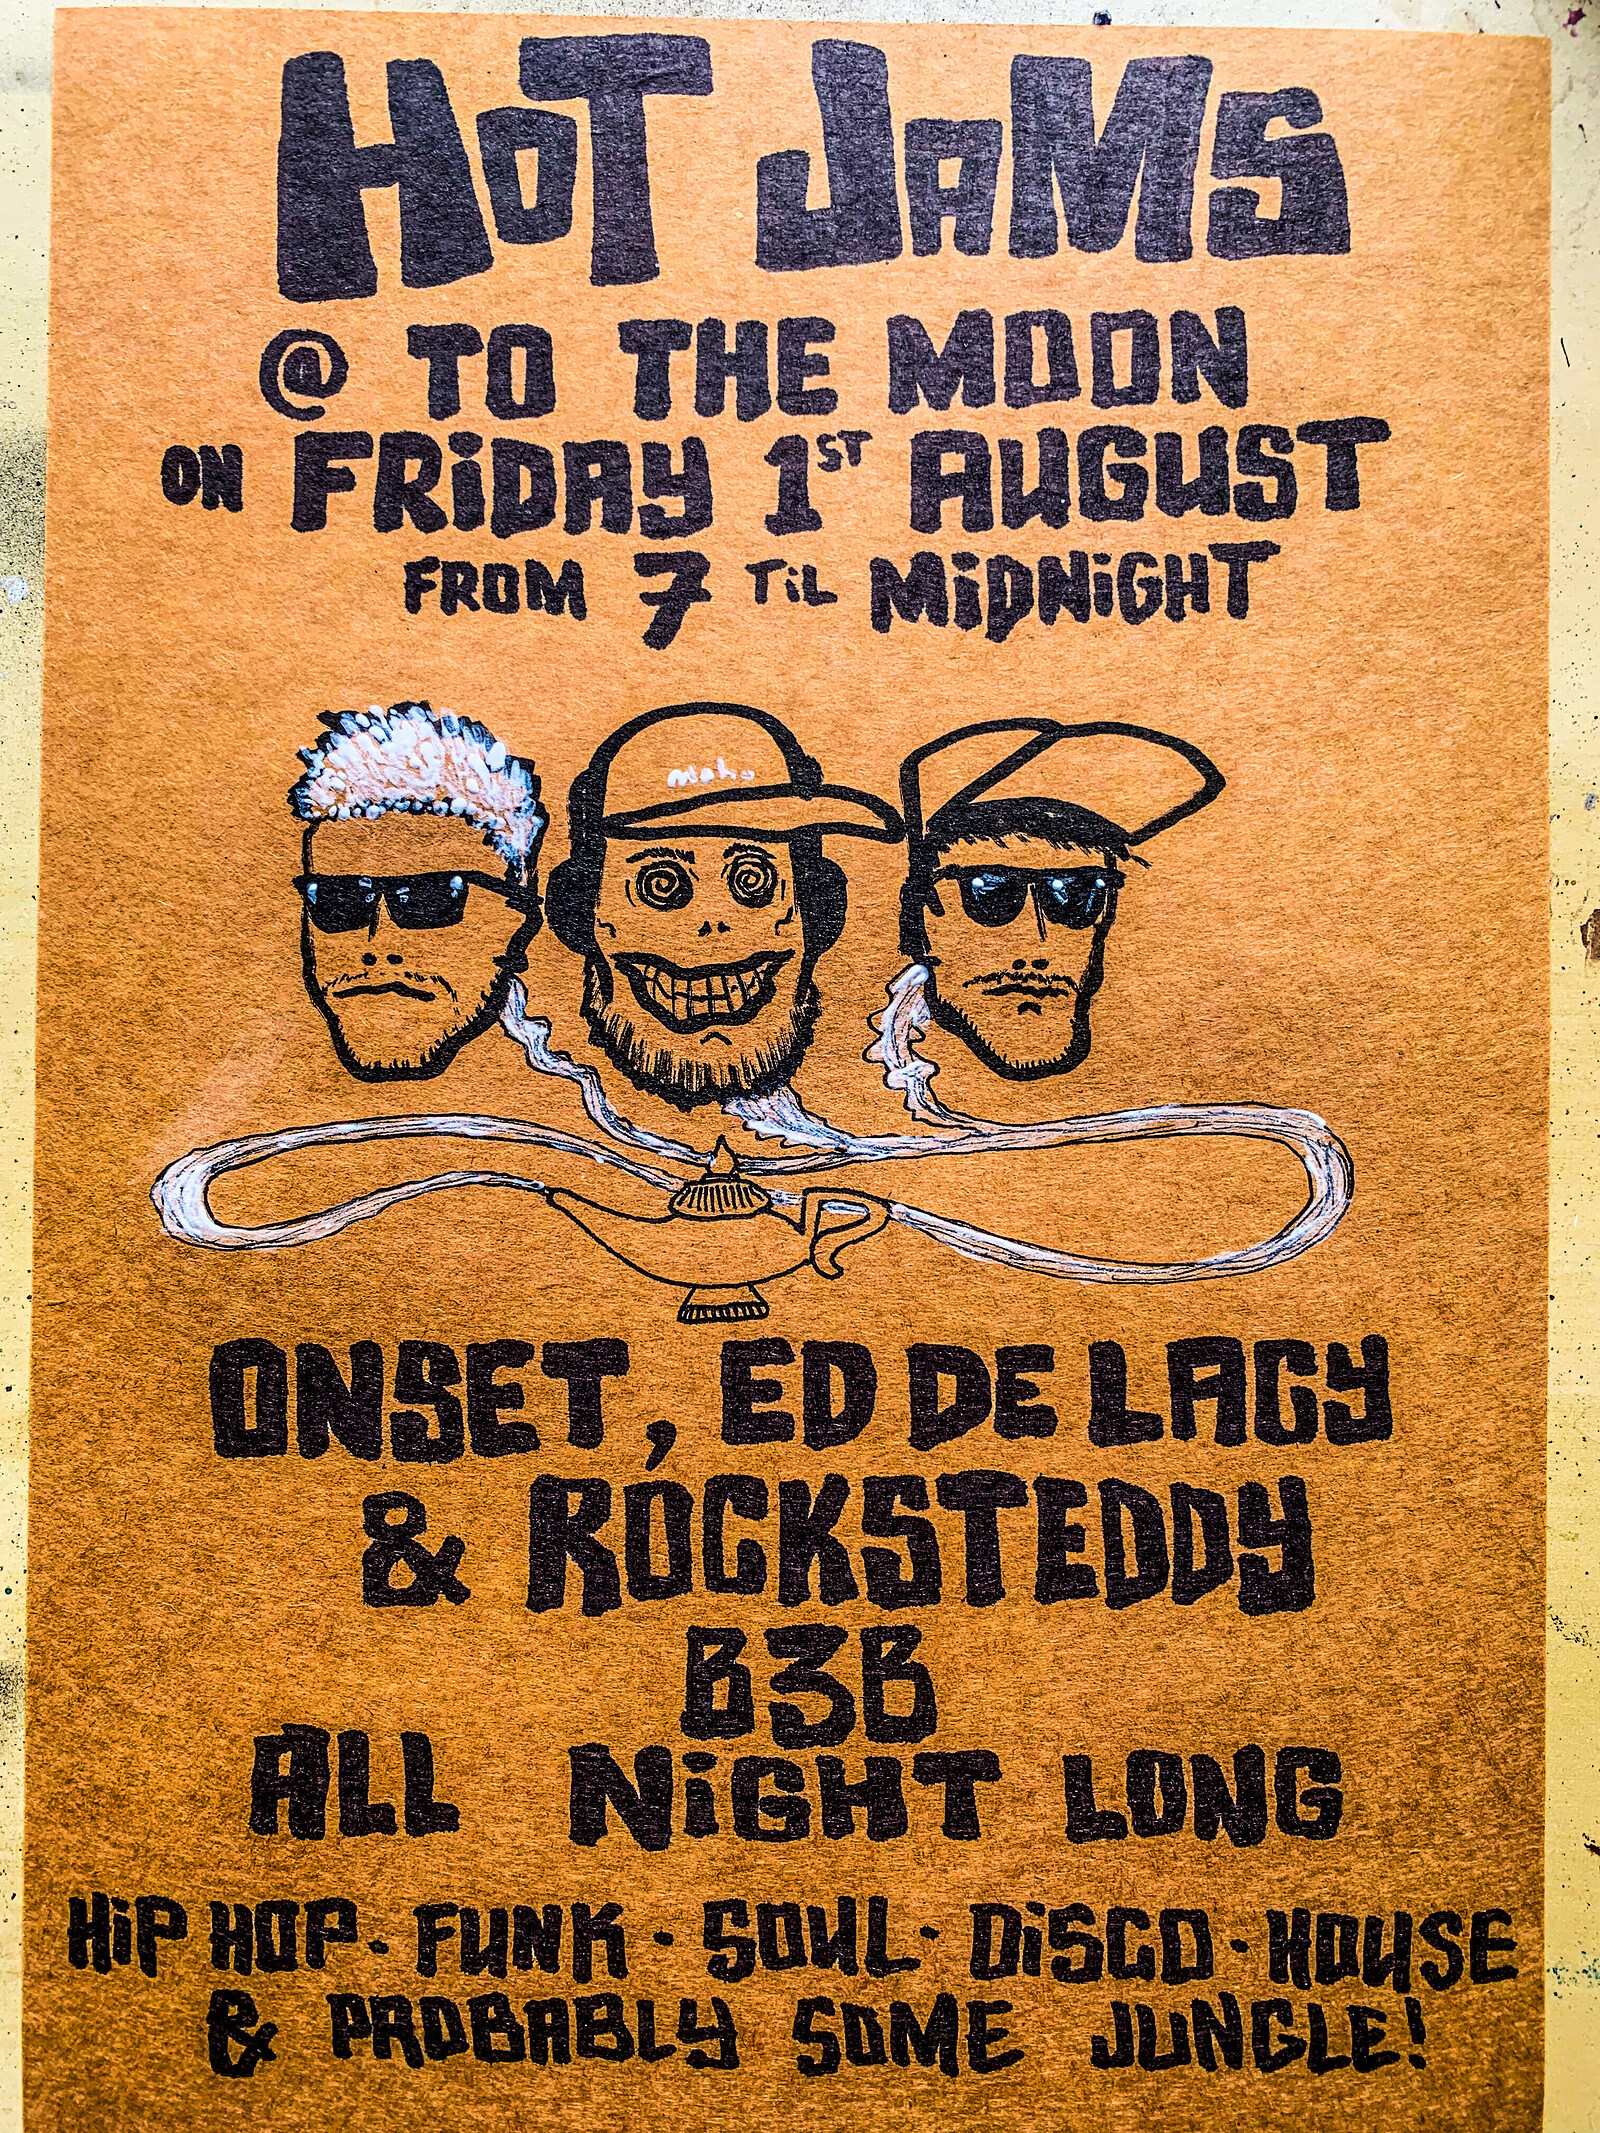 HOT JAMS
@ TO THE MOON
ON FRIDAY 1ST AUGUST
FROM 7 TIL MIDNIGHT
ONSET, ED DE LACY
& ROCKSTEDDY
B3B
ALL NIGHT LONG
HIP HOP · FUNK · SOUL · DISCO · HOUSE
& PROBABLY SOME JUNGLE!